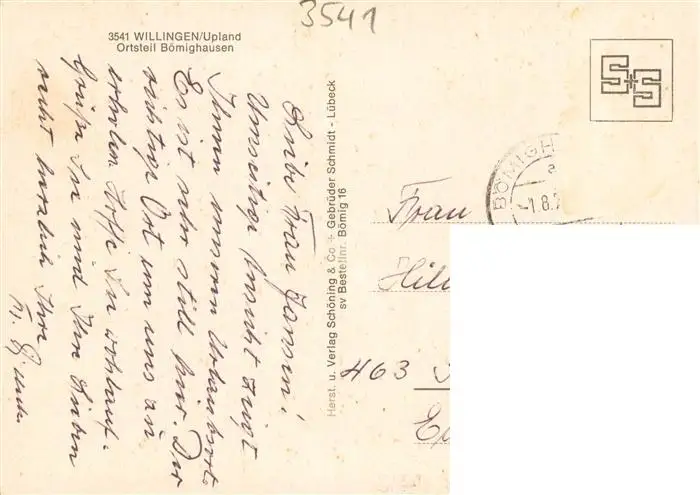 3541
3541 WILLINGEN/Upland
Ortsteil Bömighausen
Liebe Frau Jansen!
Umseitige Ansicht zeigt
Ihnen unseren Urlaubsort.
Es ist sehr still hier. Der
richtige Ort um uns zu
erholen. Hoffe Sie wohlauf.
Grüße Sie und Ihre Lieben
recht herzlich Ihre
Herst. u. Verlag Schöning & Co + Gebrüder Schmidt - Lübeck
sv Bestellnr. Bömig 16
S+S
BÖMIGH
a
-1.8.
Frau
Hill
463